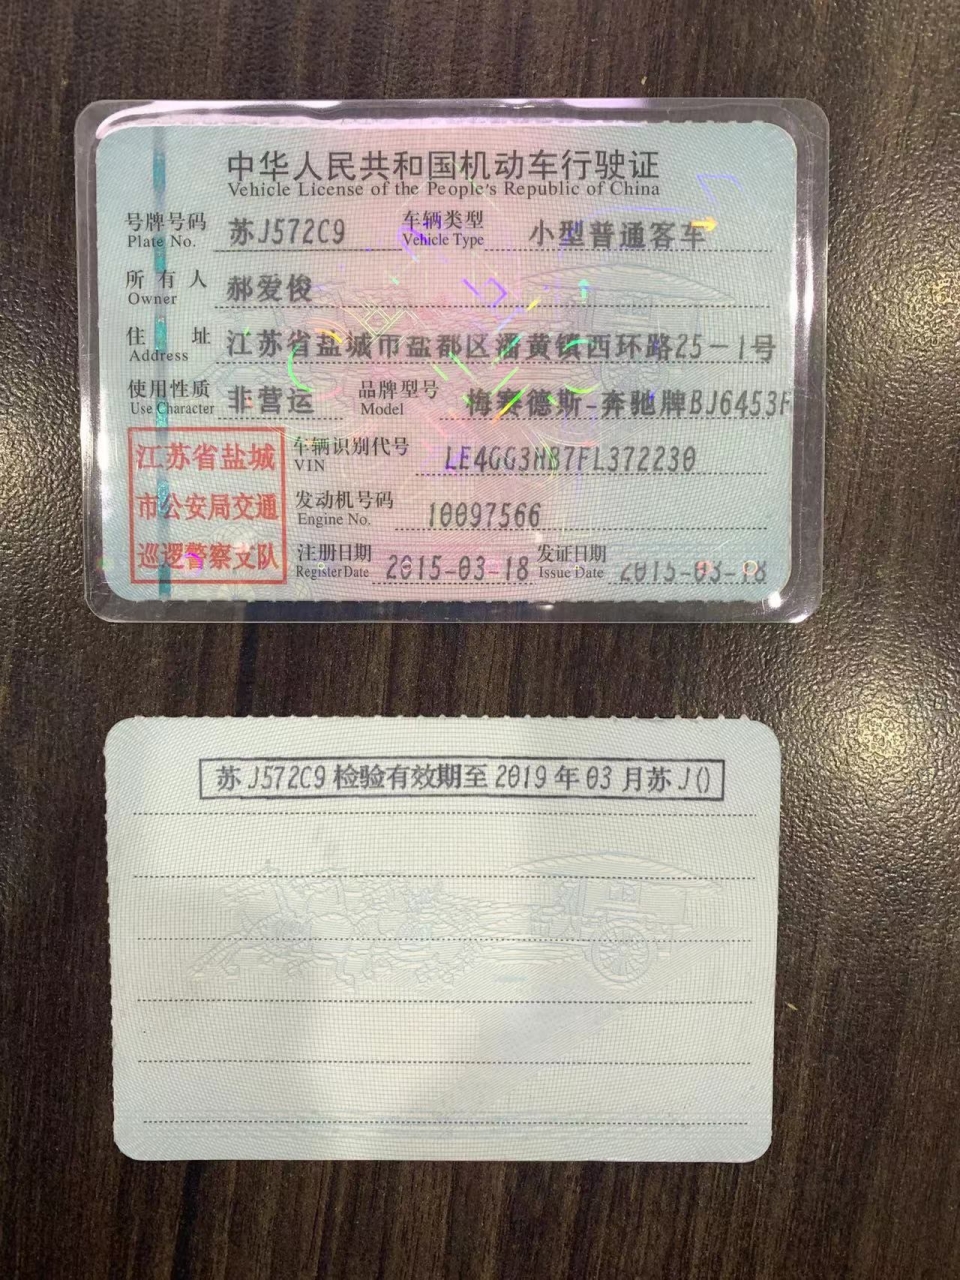 中华人民共和国机动车行驶证
Vehicle License of the People's Republic of China
号牌号码 苏J572C9 车辆类型 小型普通客车
Plate No. Vehicle Type
所有人 郝爱俊
Owner
住址 江苏省盐城市盐都区潘黄镇西环路25-1号
Address
使用性质 非营运 品牌型号 梅赛德斯-奔驰牌BJ6453F
Use Character Model
江苏省盐城 车辆识别代号 LE4GG3HB7FL372230
VIN
市公安局交通 发动机号码 10097566
Engine No.
巡逻警察支队 注册日期 2015-03-18 发证日期 2015-03-18
Register Date Issue Date
苏J572C9检验有效期至2019年03月苏J()